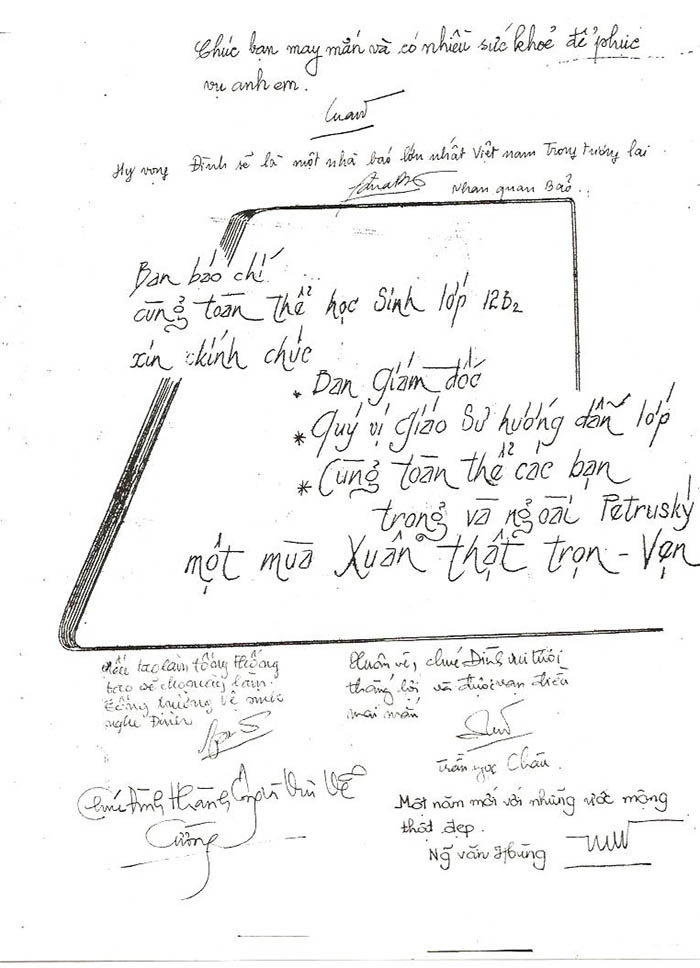 Chúc bạn may mắn và có nhiều sức khoẻ để phục
vụ anh em.
Hy vọng Đình sẽ là một nhà báo lớn nhất Việt nam trong tương lai.
Nhan quan Bảo..
Ban báo chí
cùng toàn thể học Sinh lớp 12B2
xin kính chúc
* Ban Giám đốc
* Quý vị Giáo Sư hướng dẫn lớp
* Cùng toàn thể các bạn
trong và ngoài Petruský
một mùa Xuân thật trọn - Vẹn
Nếu tao làm tổng thống
tao sẽ cho mày làm
Tổng trưởng
nghe Đình
Xuân về, chúc Đình vui tươi
thắng lợi và được vạn điều
may mắn
Trần ngọc Châu.
Chúc Đình thành công
Cường
Một năm mới với những ước mộng
thật đẹp.
Ng̃ văn Hùng